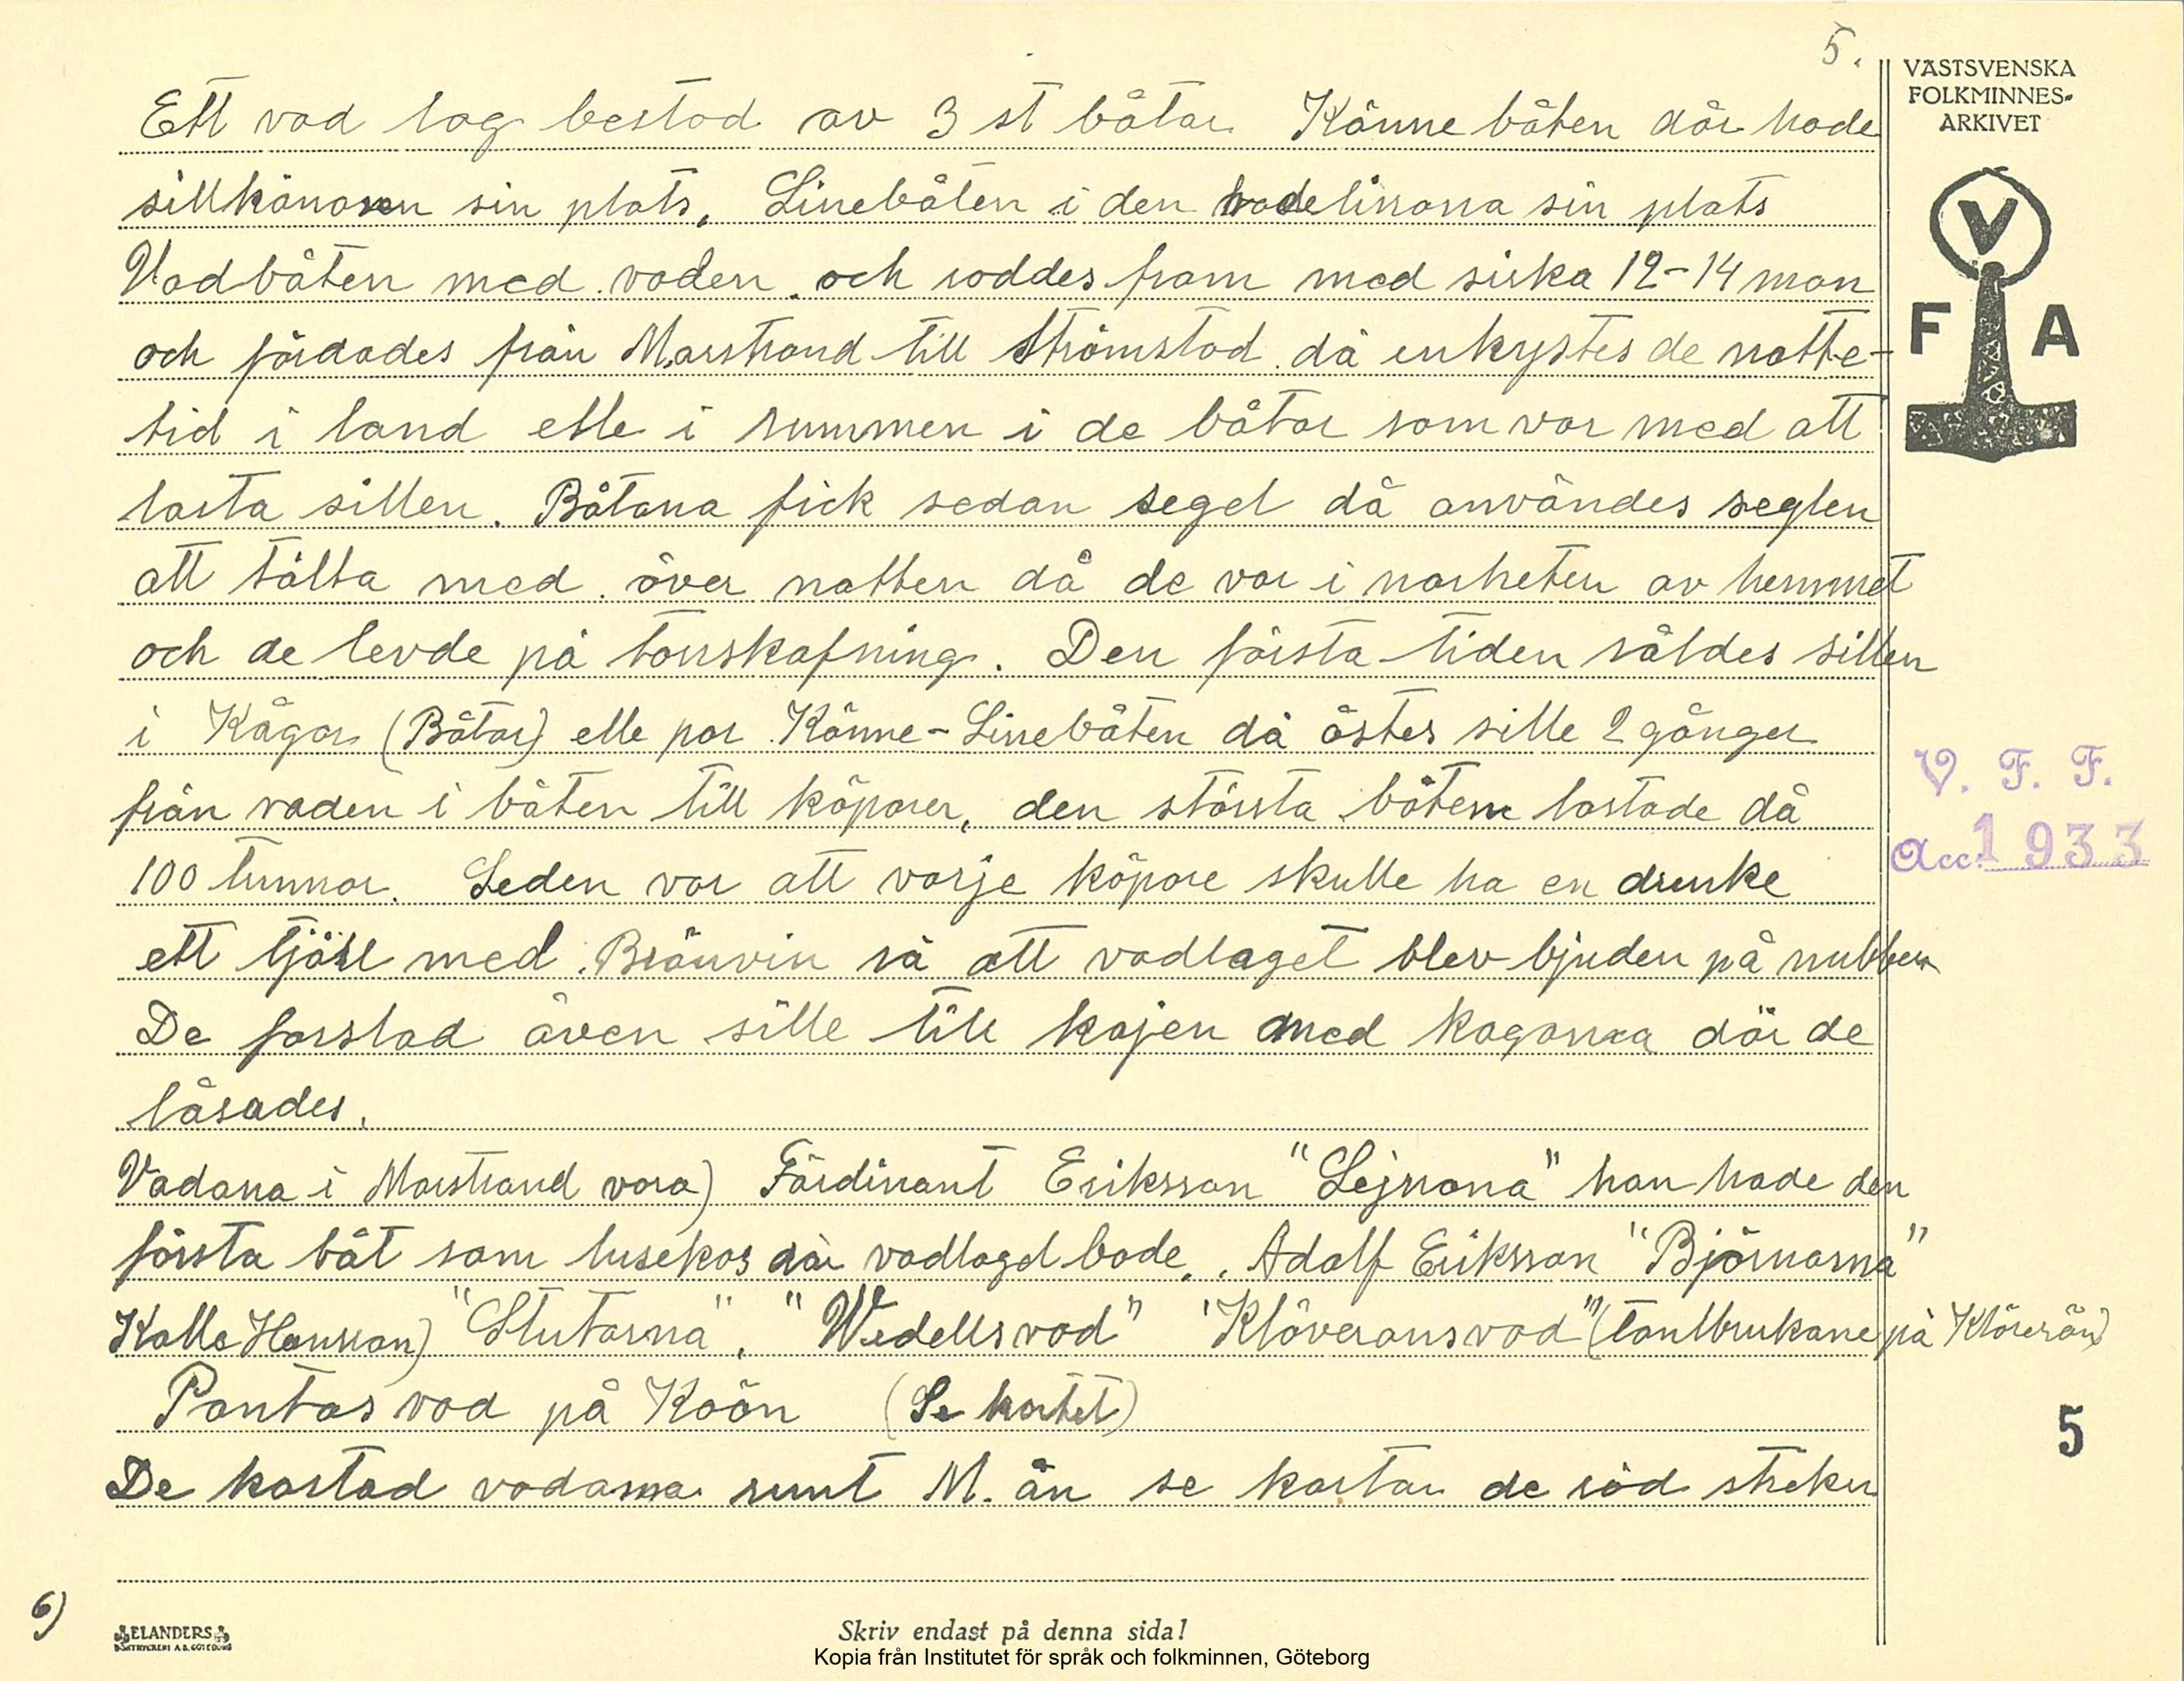 5.
VÄSTSVENSKA
FOLKMINNES-
ARKIVET
V
F A
Ett vad lag bestod av 3 st båtar Känne båten där hade
sillkänaren sin plats. Linebåten i den hade linorna sin plats
Vadbåten med vaden och roddes fram med sirka 12-14 man
och färdades från Marstrand till Strömstad då inkystes de natte-
tid i land elle i rummen i de båtar som var med att
lasta sillen. Båtana fick sedan segel då användes seglen
att tälta med över natten då de var i narheten av hemmet
och de levde på torrskafning. Den första tiden såldes sillen
i Kågar (Båtar) elle par Känne-Linebåten då östes sille 2 gånger
från vaden i båten till köparer, den största båten lastade då
100 tunnor. Seden var att varje köpare skulle ha en drunke
ett tjäril med Bränvin så att vadlaget blev bjuden på nubben
De forslad även sille till kajen med kagarna där de
låsades.
Vadana i Marstrand vora) Färdinant Eriksson "Lejnona" han hade den
första båt som lusekos där vadlaget bode. Adolf Eriksson "Björnarna"
Kalle Hansson) "Stutarna", "Wedells vad" "Klöveröns vad" (lantbrukane på Klöverön)
Pantas vad på Koön (Se kortet)
De kastad vadarna runt M. ön se kartan de röd streken
V. F. F.
Acc. 1933
5
6)
ELANDERS
BOKTRYCKERI A.B. GÖTEBORG
Skriv endast på denna sida!
Kopia från Institutet för språk och folkminnen, Göteborg